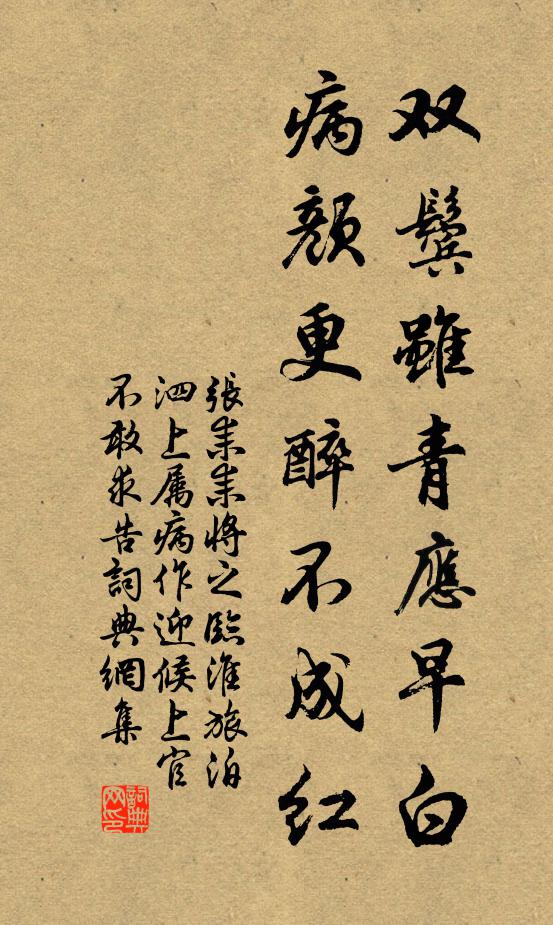 双鬓雖青應早白
病顔更醉不成红
張耒耒將之臨淮旅泊
泗上属病作迎候上官
不敢求告詞典網集
詞典网印